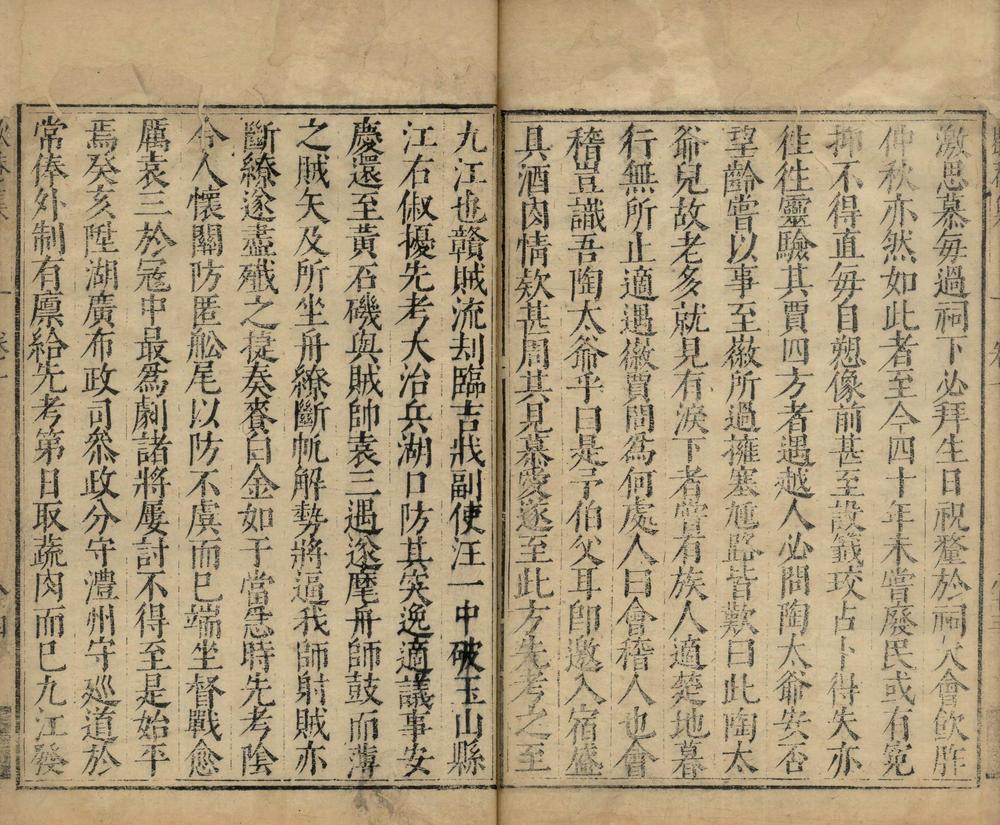 激思慕每過祠下必拜生日祝釐於祠㑹飲胙
仲秋亦然如此者至今四十年未嘗廢民或有寃
抑不得直每自愬像前甚至設籖珓占卜得失亦
徃徃靈驗其賈四方者遇越人必問陶太爺安否
望齡嘗以事至徽所過擁塞尩路皆歎曰此陶太
爺兒故老多就見有淚下者嘗有族人適楚地暮
行無所止適遇徽賈問爲何處人曰會稽人也會
稽豈識吾陶太爺乎曰是予伯父耳卽邀入宿盛
具酒肉情欵甚周其見慕愛遂至此方先考之至
九江也贛賊流刦臨吉戕副使汪一中破玉山縣
江右俶擾先考大治兵湖口防其突逸適議事安
慶還至黄石磯與賊帥袁三遇遂麾舟師鼓而薄
之賊矢及所坐舟繚斷帆解勢將逼我師射賊亦
斷繚遂盡殱之捷奏賚白金如于當急時先考陰
令人懷關防匿舩尾以防不虞而已端坐督戰愈
厲袁三於寇中最爲劇諸將屢討不得至是始平
焉癸亥陞湖廣布政司叅政分守澧州守廵道於
常俸外制有廩給先考第日取蔬肉而已九江發